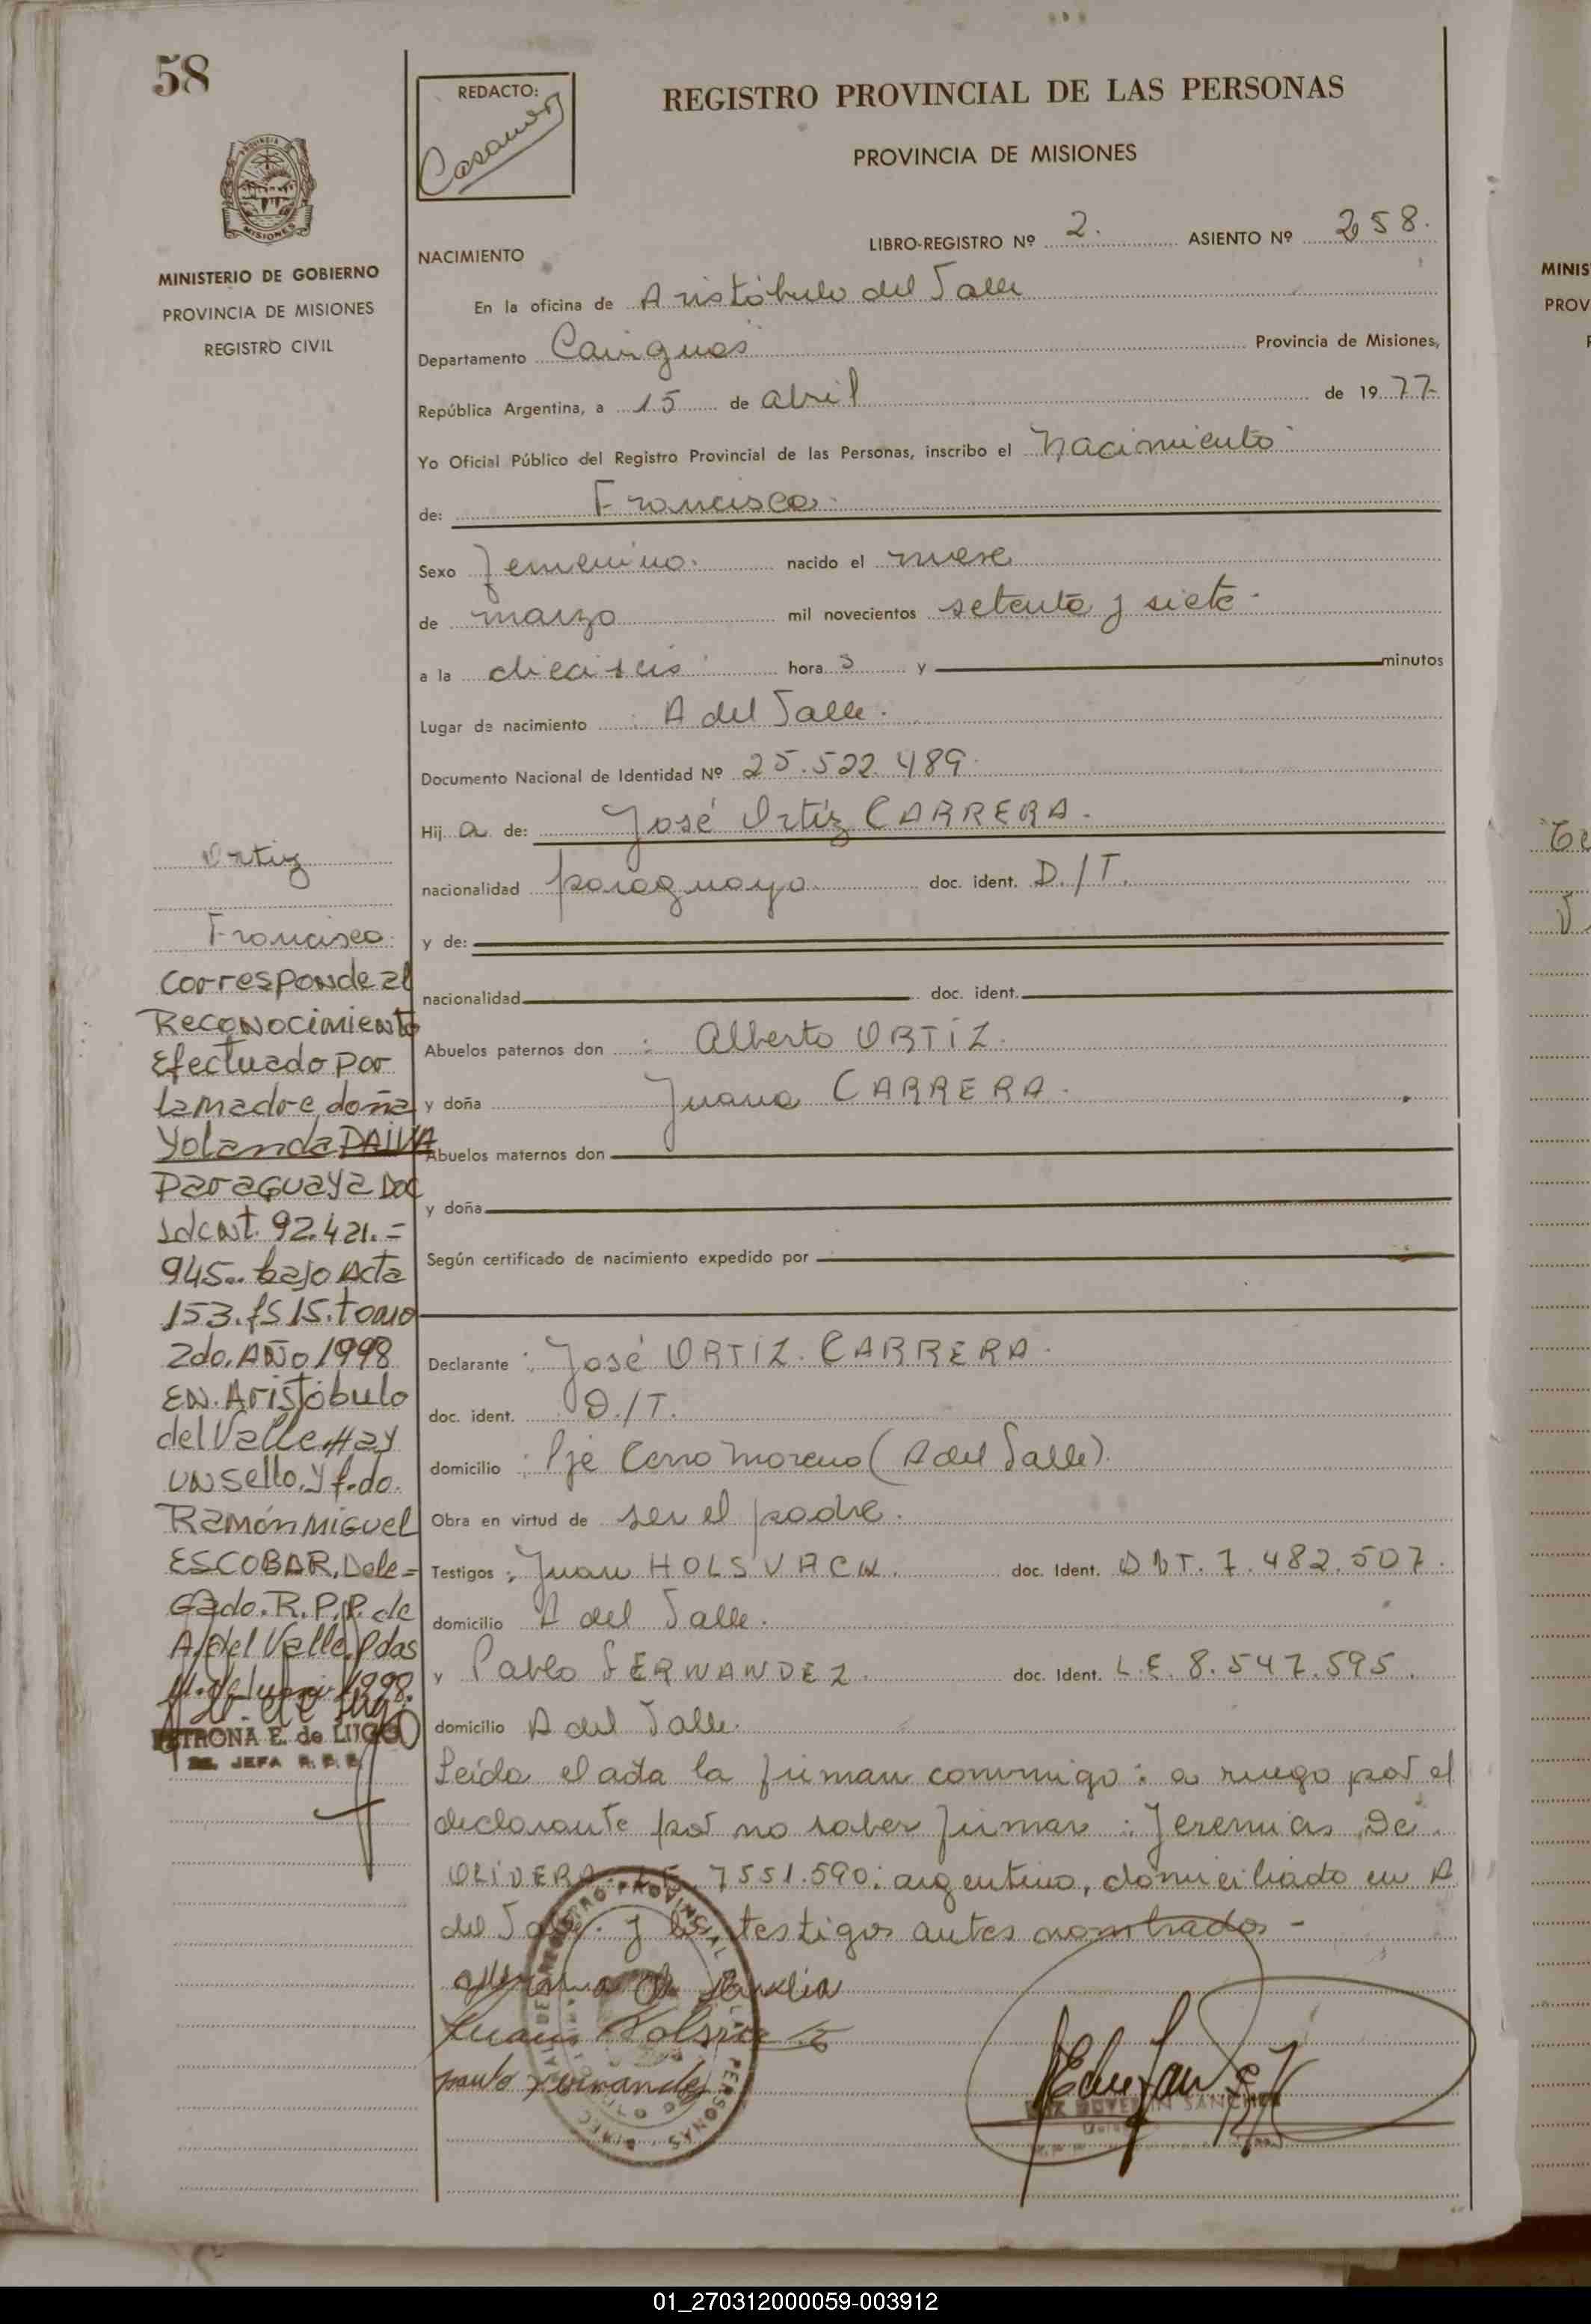 58
REDACTO:
REGISTRO PROVINCIAL DE LAS PERSONAS
PROVINCIA DE MISIONES
MISIONES
MINISTERIO DE GOBIERNO
PROVINCIA DE MISIONES
REGISTRO CIVIL
LIBRO-REGISTRO Nº 2. ASIENTO Nº 258.
NACIMIENTO
En la oficina de Aristóbulo del Valle
Departamento Cainguás Provincia de Misiones,
República Argentina, a 15 de abril de 1977
Yo Oficial Público del Registro Provincial de las Personas, inscribo el Nacimiento
de: Francisca
Sexo femenino. nacido el nueve
de marzo mil novecientos setenta y siete
a la dieciseis hora s y minutos
Lugar de nacimiento : A del Valle.
Documento Nacional de Identidad Nº 25.522.489
Hij a de: José Ortíz CARRERA.
nacionalidad paraguaya doc. ident. D./T.
y de:
nacionalidad doc. ident.
Abuelos paternos don : Alberto ORTÍZ.
y doña Juana CARRERA.
Abuelos maternos don
y doña
Según certificado de nacimiento expedido por
Declarante : José ORTIZ. CARRERA.
doc. ident. D./T.
domicilio : Pje Cerro Moreno (A del Valle).
Obra en virtud de ser el padre.
Testigos : Juan HOLSVACH. doc. Ident. DNT. 7.482.507.
domicilio A del Valle.
y Pablo FERNANDEZ. doc. Ident. L.E. 8.547.595.
domicilio A del Valle.
Leída el acta la firman conmigo: a ruego por el
declarante por no saber firmar : Jeremias De
OLIVERA. L.E. 7551.590: argentino, domiciliado en A
del Valle. y los testigos antes nombrados -
Ortiz
Francisca
Corresponde al
Reconocimiento
Efectuado por
la madre doña
Yolanda PAIVA
Paraguaya Doc
Ident. 92.421.=
945.. bajo Acta
153. fs 15. tomo
2do. Año 1998
EN. Aristóbulo
del Valle. Hay
un sello. y f.do.
Ramón Miguel
ESCOBAR, Dele=
gado. R.P.P. de
A. del Valle. Pdas
PETRONA E. de LUGO
JEFA R.P.P.
REGISTRO PROVINCIAL DE LAS PERSONAS
01_270312000059-003912